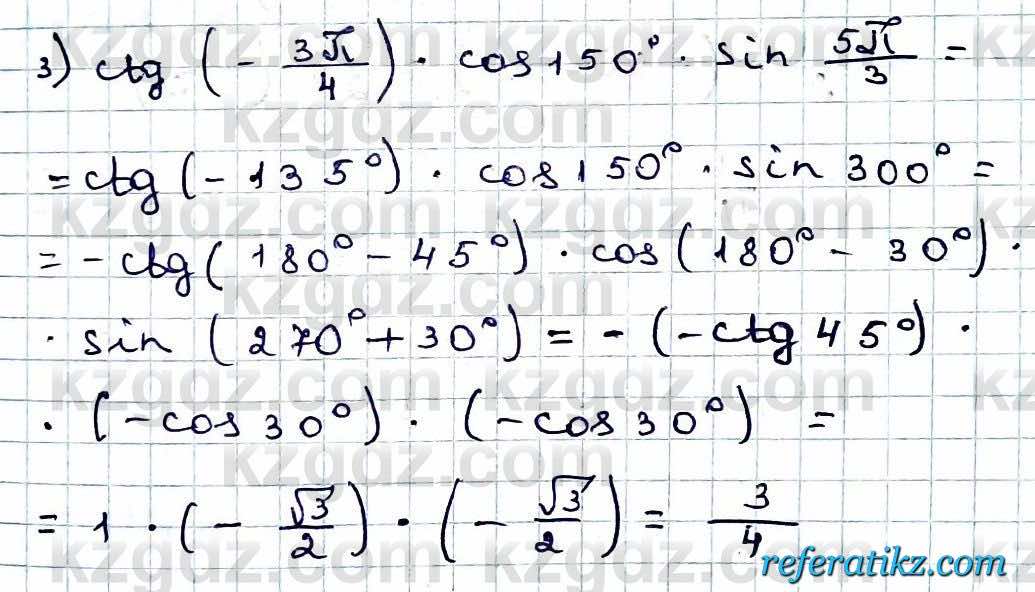 3) ctg (- 3π/4) · cos150° · sin 5π/3 =
= ctg (-135°) · cos150° · sin 300° =
= - ctg (180° - 45°) · cos (180° - 30°) ·
· sin (270° + 30°) = - (-ctg 45°) ·
· (-cos 30°) · (-cos 30°) =
= 1 · (- √3/2) · (- √3/2) = 3/4
referatikz.com
kzgdz.com